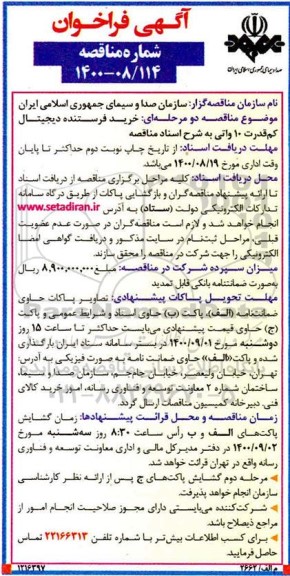 آگهی فراخوان
شماره مناقصه
۱۴۰۰-۰۸/۱۱۴
صدا و سیمای جمهوری اسلامی ایران
نام سازمان مناقصه‌گزار: سازمان صدا و سیمای جمهوری اسلامی ایران
موضوع مناقصه دو مرحله‌ای: خرید فرستنده دیجیتال
کم‌قدرت ۱۰ واتی به شرح اسناد مناقصه
مهلت دریافت اسناد: از تاریخ چاپ نوبت دوم حداکثر تا پایان
وقت اداری مورخ ۱۴۰۰/۰۸/۱۹ می‌باشد.
محل دریافت اسناد: کلیه مراحل برگزاری مناقصه از دریافت اسناد
تا ارائه پیشنهاد مناقصه‌گران و بازگشایی پاکات از طریق درگاه سامانه
تدارکات الکترونیکی دولت (ستاد) به آدرس www.setadiran.ir
انجام خواهد شد و لازم است مناقصه‌گران در صورت عدم عضویت
قبلی، مراحل ثبت‌نام در سایت مذکور و دریافت گواهی امضا
الکترونیکی را جهت شرکت در مناقصه را محقق سازند.
میزان سپرده شرکت در مناقصه: مبلغ ۸,۹۰۰,۰۰۰,۰۰۰ ریال
به‌صورت ضمانتنامه بانکی قابل تمدید
مهلت تحویل پاکات پیشنهادی: تصاویر پاکات حاوی
ضمانتنامه (الف)، پاکت (ب) حاوی اسناد و شرایط عمومی و پاکت
(ج) حاوی قیمت پیشنهادی می‌بایست حداکثر تا ساعت ۱۵ روز
دوشنبه مورخ ۱۴۰۰/۰۹/۰۱ در سامانه ستاد ایران بارگذاری
شده و پاکت «الف» حاوی ضمانت نامه به صورت فیزیکی به آدرس:
تهران، خیابان ولیعصر، خیابان جام‌جم، سازمان صدا و سیما،
ساختمان شماره ۲ معاونت توسعه و فناوری رسانه، امور خرید کالای
فنی، دبیرخانه کمیسیون مناقصات ارسال گردد.
زمان مناقصه و محل قرائت پیشنهادها: زمان گشایش
پاکت‌های الف و ب رأس ساعت ۸:۳۰ روز سه‌شنبه مورخ
۱۴۰۰/۰۹/۰۲ در دفتر مدیرکل مالی و اداری معاونت توسعه و فناوری
رسانه واقع در تهران قرائت خواهد شد.
مرحله دوم گشایش پاکت‌های ج پس از ارائه نظر کارشناسی
سازمان انجام خواهد پذیرفت.
شرکت‌کننده می‌بایستی دارای مجوز صلاحیت انجام امور از
مراجع ذیصلاح باشد.
برای کسب اطلاعات بیش‌تر با شماره تلفن ۲۲۱۶۶۳۱۳ تماس
حاصل فرمایید.
م الف/۲۶۶۲
۱۲۱۶۳۹۷